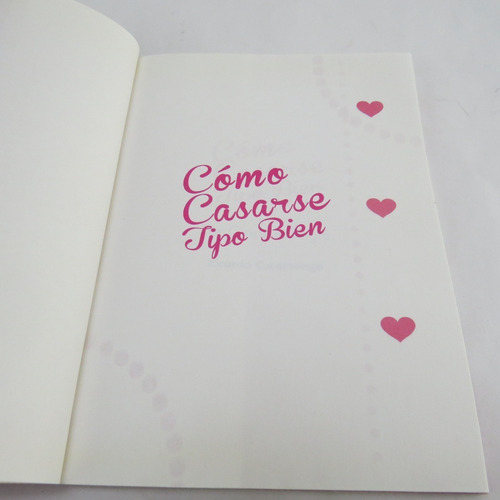 Cómo
Casarse
Tipo Bien